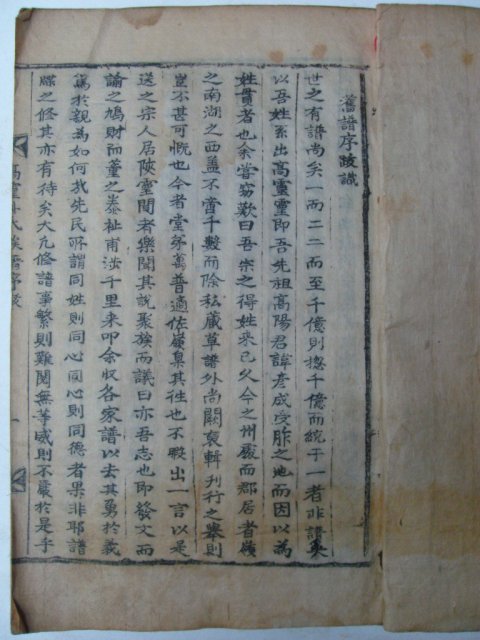 舊譜序跋識
世之有譜尚矣一而二二而至千億則揔千億而統于一者非譜奚
以吾姓系出高靈靈即吾先祖高陽君諱彦成受胙之地而因以爲
姓貫者也余嘗竊歎曰吾宗之得姓来已久今之州處而郡居者嶺
之南湖之西盖不啻千數而除私藏草譜外尚闕裒輯刊行之擧則
豈不甚可慨也今者堂弟萬普適佐嶺臬其徃也不暇出一言以是
送之宗人居陜室間者樂聞其說聚族而議曰亦吾志也即發文而
諭之鳩財而董之泰祉甫涉千里来叩余收各家譜以去其勇於義
篤於親為如何哉先民所謂同姓則同心同心則同德者果非耶譜
牒之修其亦有待矣大凡修譜事繁則難関無等威則不嚴於是乎
高靈朴氏族譜序跋 一